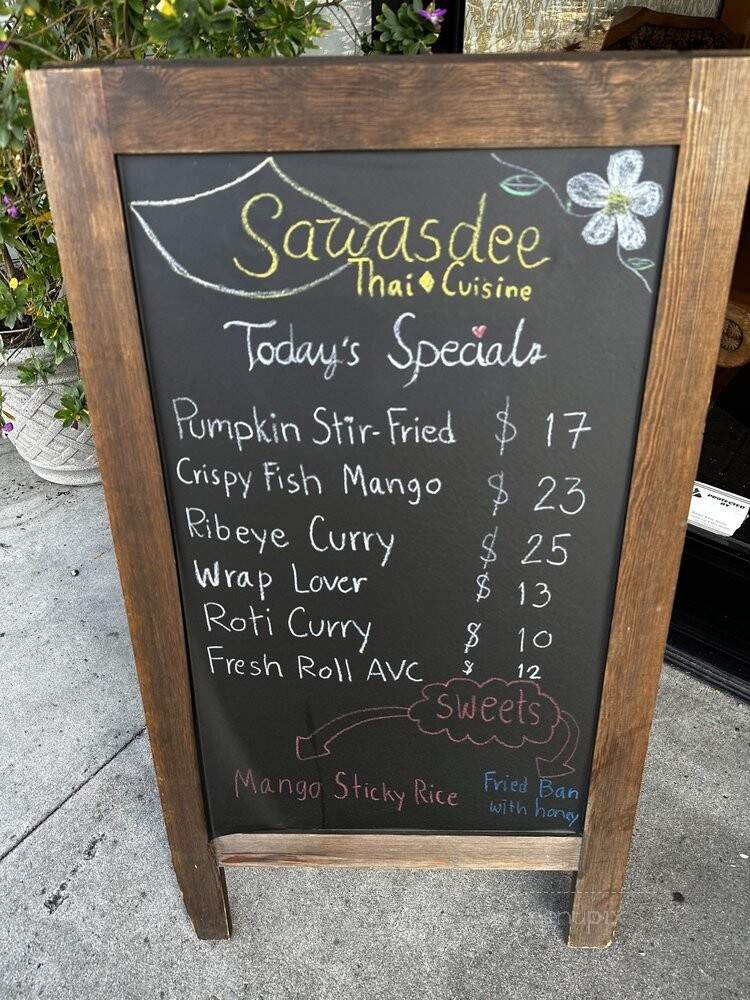 Sawasdee
Thai Cuisine
Today's Specials
Pumpkin Stir-Fried $ 17
Crispy Fish Mango $ 23
Ribeye Curry $ 25
Wrap Lover $ 13
Roti Curry $ 10
Fresh Roll AVC $ 12
sweets
Mango Sticky Rice
Fried Ban
with honey
PROTECTED
BY
menupix